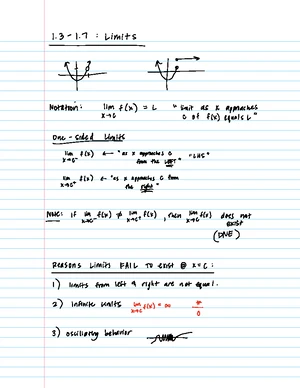 1.3 - 1.7 : Limits
Notation: lim f(x) = L "limit as x approaches
x→c c of f(x) equals L"
One-sided limits
lim f(x) ← "as x approaches c
x→c⁻ from the LEFT" "LHS"
lim f(x) ← "as x approaches c from
x→c⁺ the right"
if lim f(x) ≠ lim f(x), then lim f(x) does not
x→c⁻ x→c⁺ x→c exist
(DNE)
Reasons Limits FAIL to exist @ x=c:
1) limits from left & right are not equal.
2) infinite limits lim f(x) = ∞ #/0
x→c
3) oscillating behavior